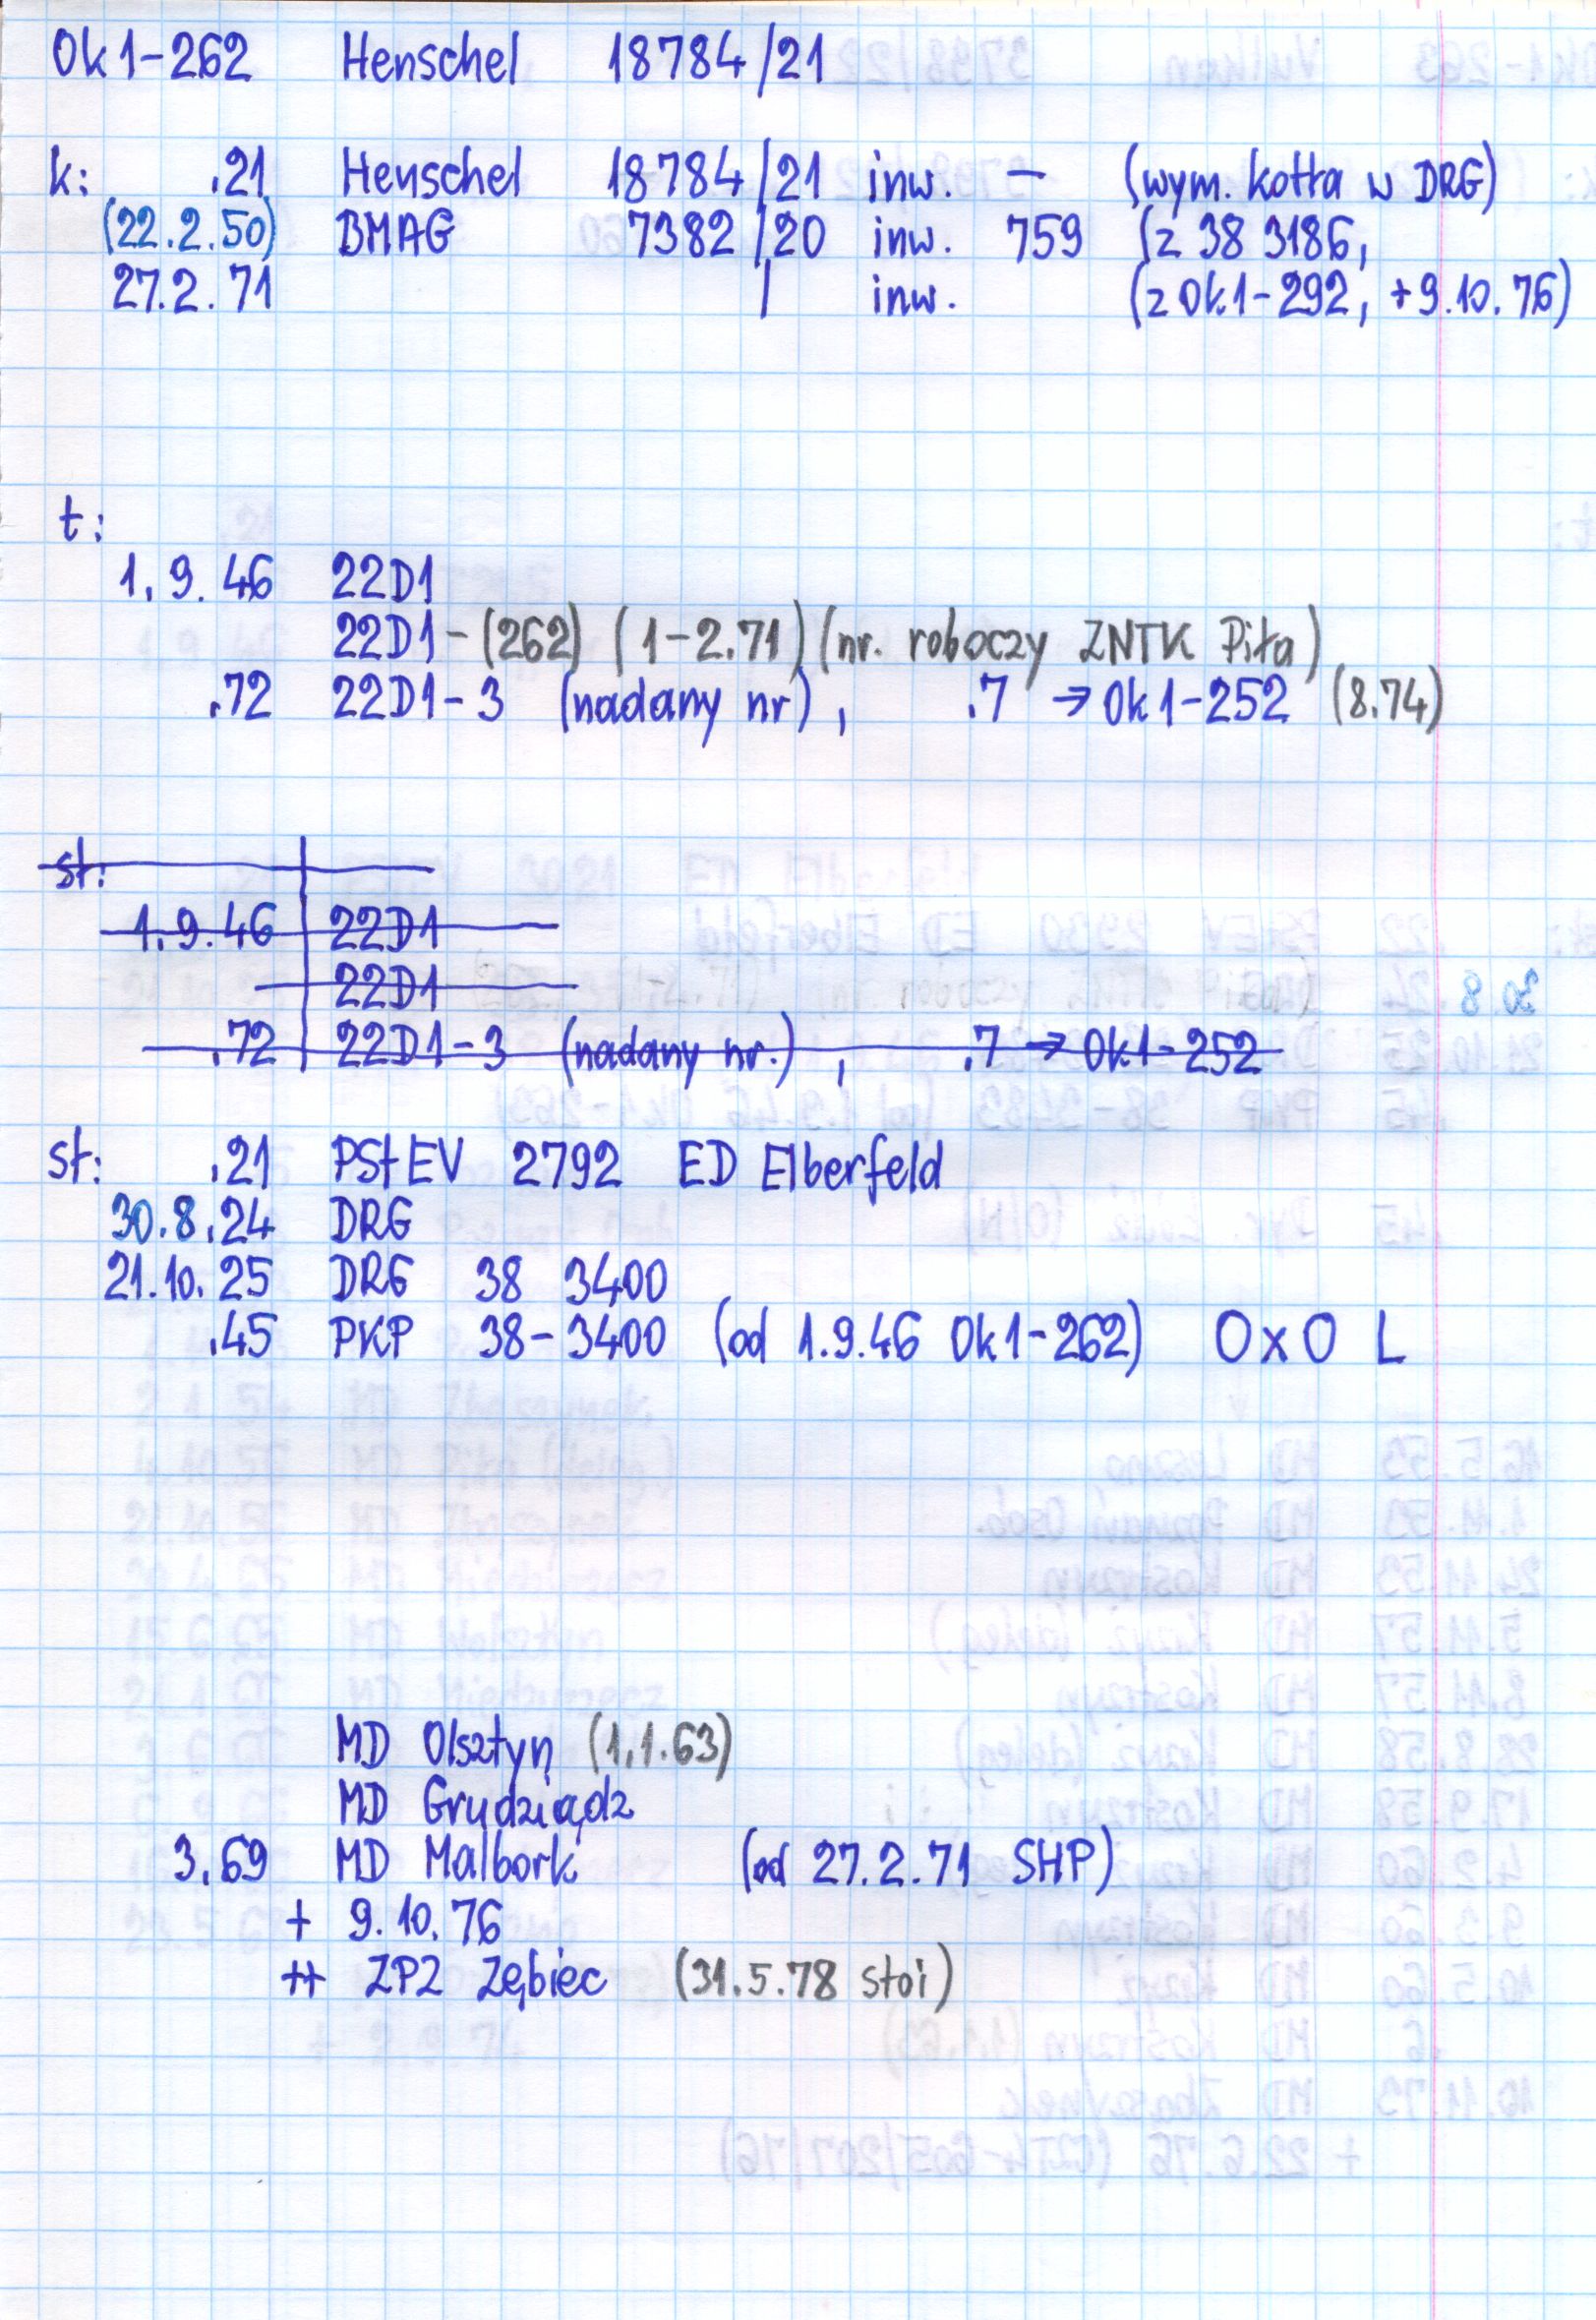 Ok1-262 Henschel 18784/21
k: .21 Henschel 18784/21 inw. - (wym. kotła w DRG)
(22.2.50) BMAG 7382/20 inw. 759 (z 38 3186,
27.2.71 / inw. (z Ok1-292, +9.10.76)
t:
1.9.46 22D1
22D1-(262) (1-2.71) (nr. roboczy ZNTK Piła)
.72 22D1-3 (nadany nr), .7 → Ok1-252 (8.74)
st:
1.9.46 22D1
22D1
.72 22D1-3 (nadany nr.), .7 → Ok1-252
st: .21 PStEV 2792 ED Elberfeld
30.8.24 DRG
21.10.25 DRG 38 3400
.45 PKP 38-3400 (od 1.9.46 Ok1-262) OxO L
MD Olsztyn (1.1.63)
MD Grudziądz
3.69 MD Malbork (od 27.2.71 SHP)
+ 9.10.76
++ ZPZ Zębiec (31.5.78 stoi)